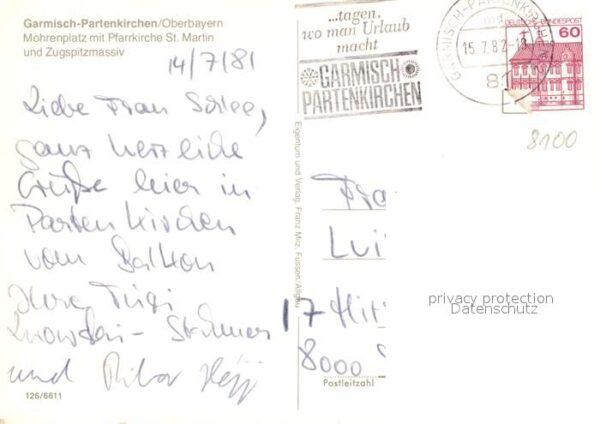 Garmisch-Partenkirchen/Oberbayern
Mohrenplatz mit Pfarrkirche St. Martin
und Zugspitzmassiv
14/7/81
Liebe Frau
ganz herzliche
Grüße hier in
Partenkirchen
vom Balkon
und
126/6611
Eigentum und Verlag, Franz Milz, Füssen/Allgäu
...tagen,
wo man Urlaub
macht
GARMISCH
PARTENKIRCHEN
GARMISCH-PARTENKIRCHEN
15.7.82
81
DEUTSCHE BUNDESPOST
60
8100
Fra
Lui
17
8000
Postleitzahl
privacy protection
Datenschutz